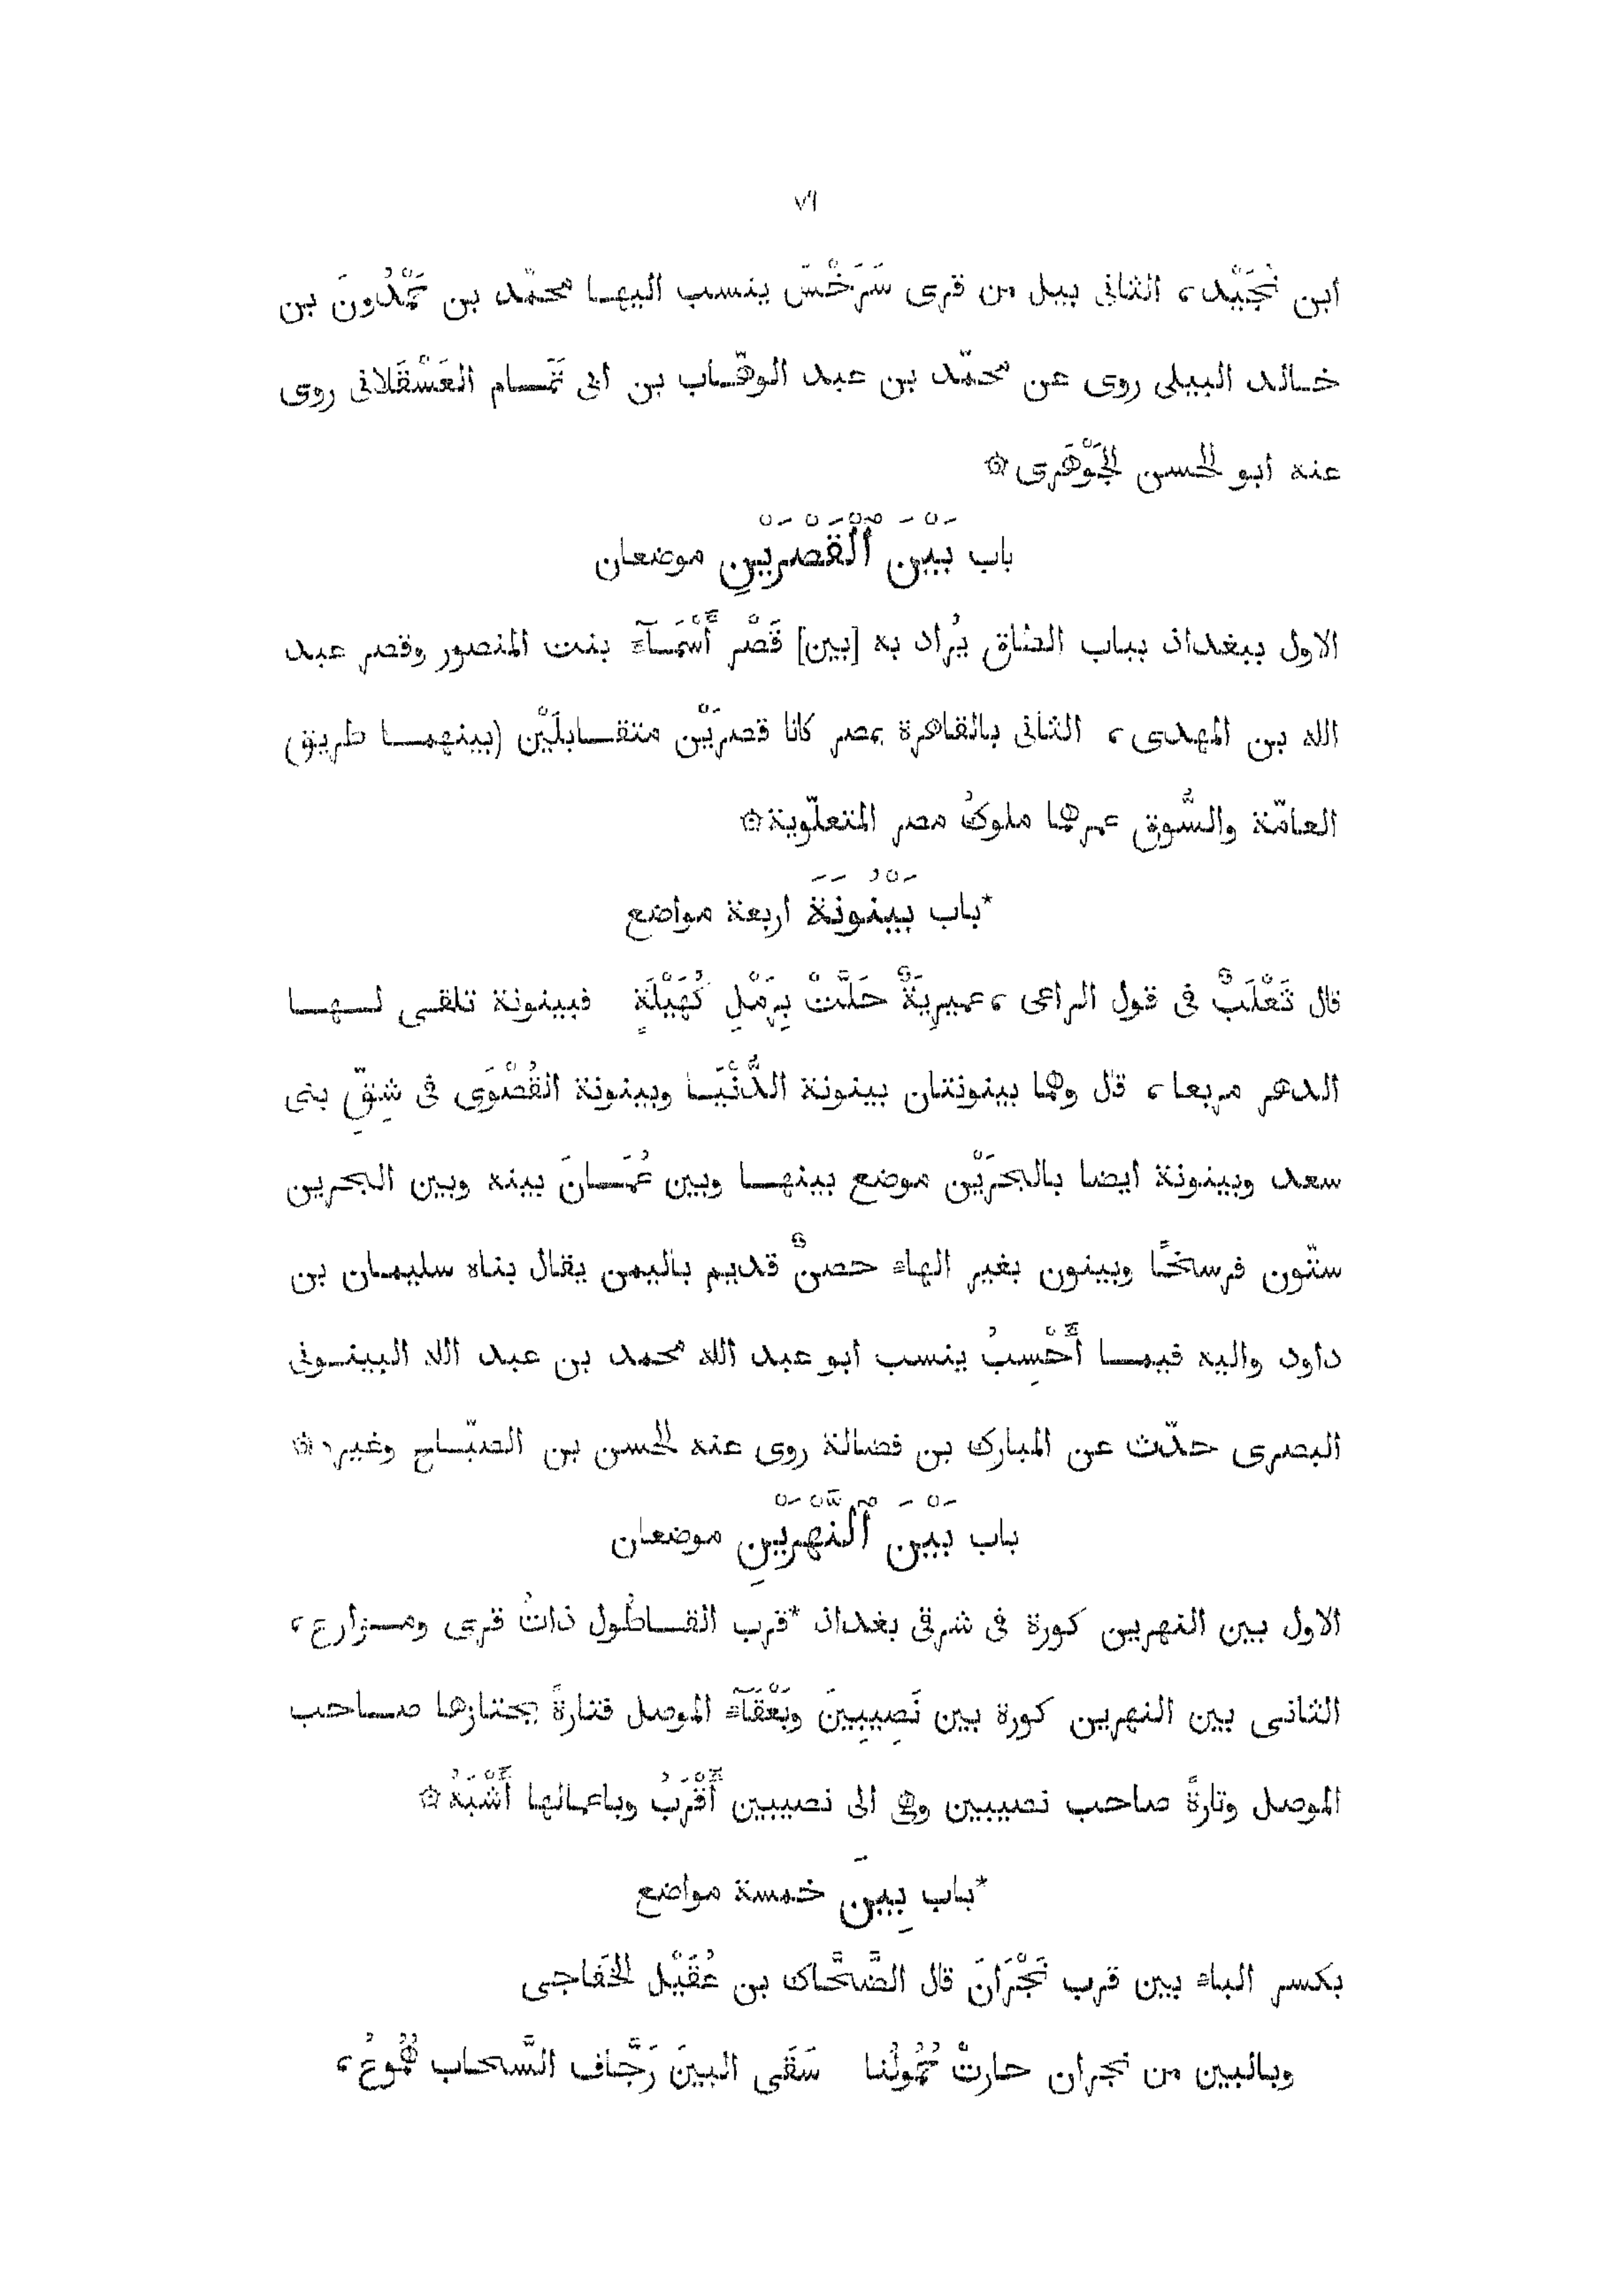 ٧٩
ابن نُجَيْد، الثانى بيل من قرى سَرَخْسَ ينسب اليها محمّد بن حَمْدُونَ بن
خالد البيلى روى عن محمّد بن عبد الوهّاب بن ابى تَمّام العَسْقَلانى روى
عنه ابو الحسن الجَوْهَرى ۞
باب بَيْنَ ٱلْقَصْرَيْنِ موضعان
الاول ببغداد بباب الطاق يُراد به [بين] قَصْر أَسْمَآءَ بنت المنصور وقصر عبد
الله بن المهدى، الثانى بالقاهرة بمصر كانا قصرَيْن متقابلَيْن (بينهما طريق)
العامّة والسُّوق عمرهما ملوكُ مصر المتعلّوية ۞
*باب بَيْنُونَةَ اربعة مواضع
قال ثَعْلَبٌ فى قول الراعى، عميرِيَةٌ حَلَّتْ بِرَمْلِ كُهَيْلَةٍ فبينونة تلقى لها
الدهر مربعا، قال وهما بينونتان بينونة الدُّنْيَا وبينونة القُصْوَى فى شِقِّ بنى
سعد وبينونة ايضا بالبحرَيْن موضع بينها وبين عُمَانَ بينه وبين البحرين
ستّون فرسخًا وبينون بغير الهاء حصنٌ قديم باليمن يقال بناه سليمان بن
داود واليه فيما أَحْسِبُ ينسب ابو عبد الله محمد بن عبد الله البينونى
البصرى حدّث عن المبارك بن فضالة روى عنه الحسن بن الصبّاح وغيره ۞
باب بَيْنَ ٱلنَّهْرَيْنِ موضعان
الاول بين النهرين كورة فى شرقى بغداد *قرب القاطُول ذاتُ قرى ومزارع،
الثانى بين النهرين كورة بين نَصِيبِينَ وبَقْعَآءَ الموصل فتارةً يجتازها صاحب
الموصل وتارةً صاحب نصيبين وهى الى نصيبين أَقْرَبُ وباعمالها أَشْبَهُ ۞
*باب بِينَ خمسة مواضع
بكسر الباء بين قرب نَجْرَانَ قال الضَّحَّاك بن عُقَيْل الخَفاجى
وبالبين من نجران حارتْ حُمُولُنا سَقَى البينَ رَجَّاف السَّحاب هَمُوعُ،